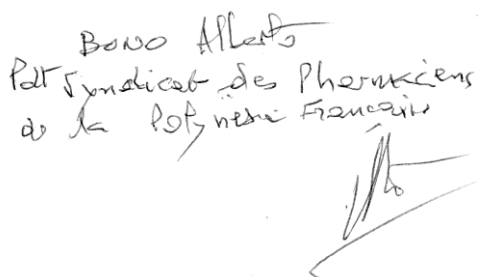 BONO Alberto
Pdt Syndicat des Pharmaciens
de la Polynésie Française